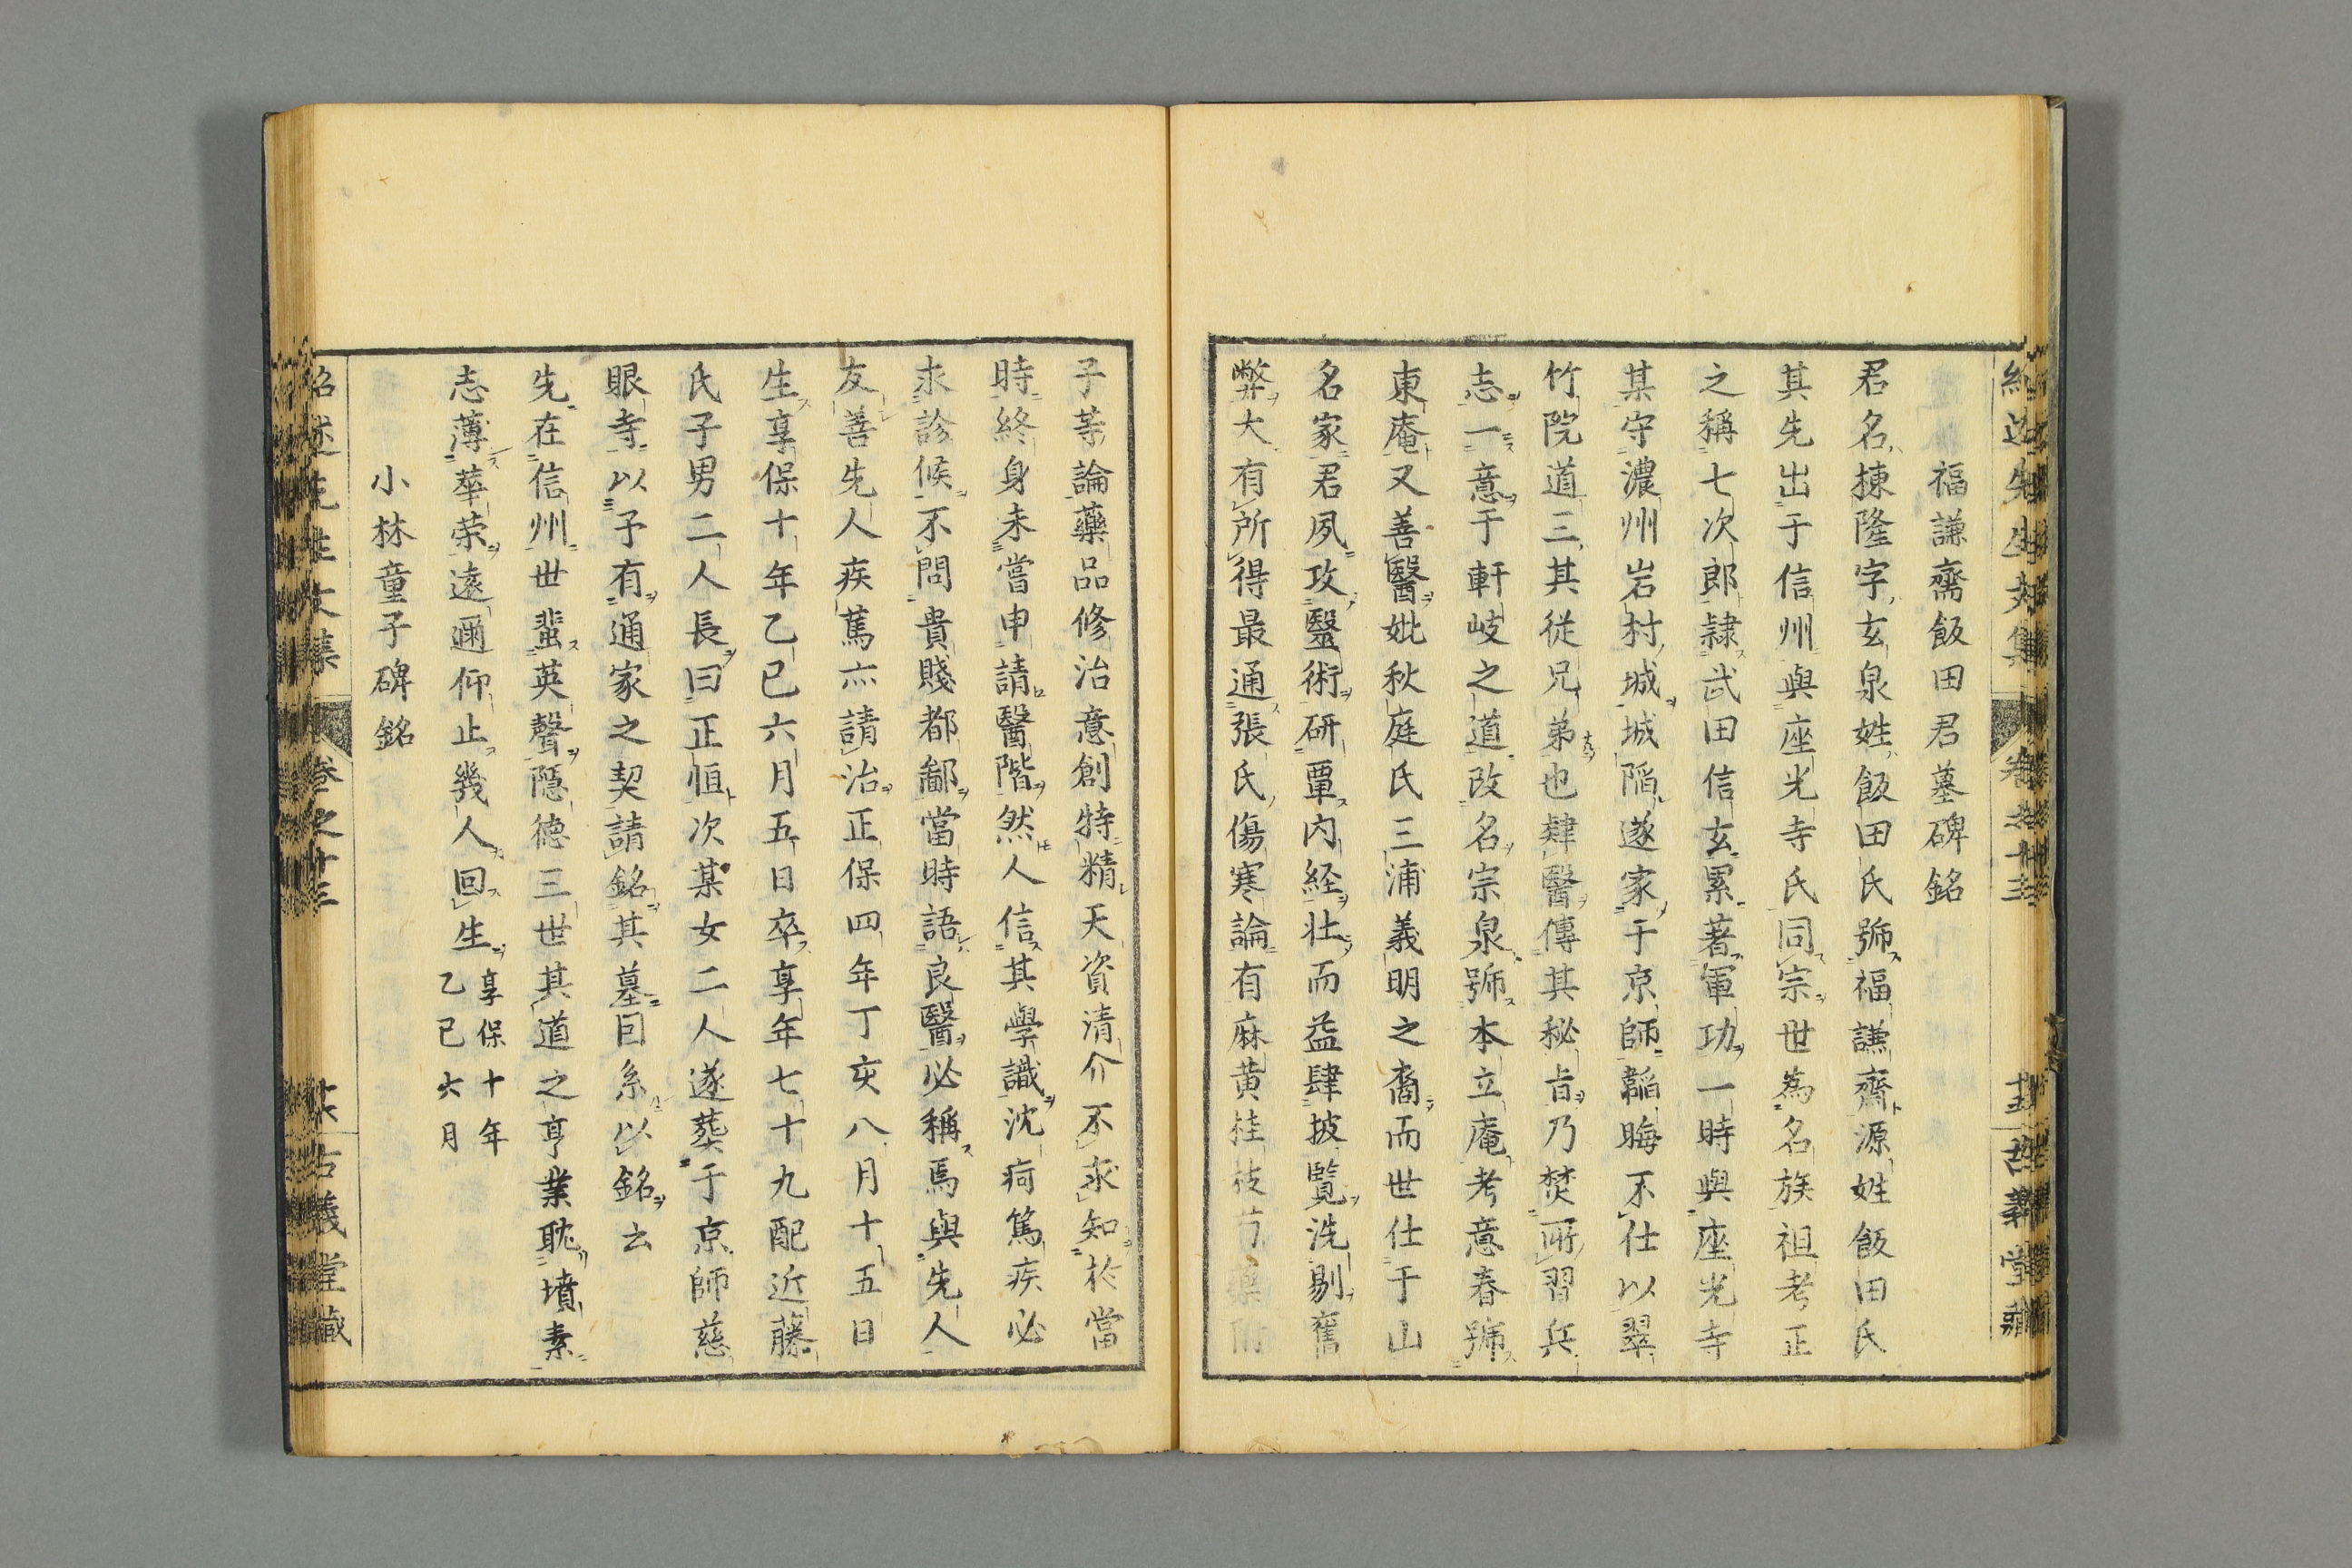 紹述先生文集 卷之十三 十五 古義堂藏
福謙齋飯田君墓碑銘
君名棟隆字玄泉姓飯田氏號福謙齋源姓飯田氏
其先出于信州與座光寺氏同宗世為名族祖考正
之稱七次郎隷武田信玄累著軍功一時與座光寺
某守濃州岩村城城陥遂家于京師韜晦不仕以翠
竹院道三其従兄弟也肄醫傳其秘旨乃焚所習兵
志一意于軒岐之道改名宗泉號本立庵考意春號
東庵又善醫妣秋庭氏三浦義明之裔而世仕于山
名家君夙攻醫術研覃内経壮而益肆披覧洗剔舊
弊大有所得最通張氏傷寒論有麻黄桂枝芍藥附
子等論藥品修治意創特精天資清介不求知於當
時終身未嘗申請醫階然人信其學識沈痾篤疾必
求診候不問貴賤都鄙當時語良醫必稱焉與先人
友善先人疾篤亦請治正保四年丁亥八月十五日
生享保十年乙巳六月五日卒享年七十九配近藤
氏子男二人長曰正恒次某女二人遂葬于京師慈
眼寺以予有通家之契請銘其墓因系以銘云
先在信州世蜚英聲隠徳三世其道之亨業耽墳素
志薄華荣遠邇仰止幾人回生 享保十年乙巳六月
小林童子碑銘
紹述先生文集 卷之十三 十六 古義堂藏